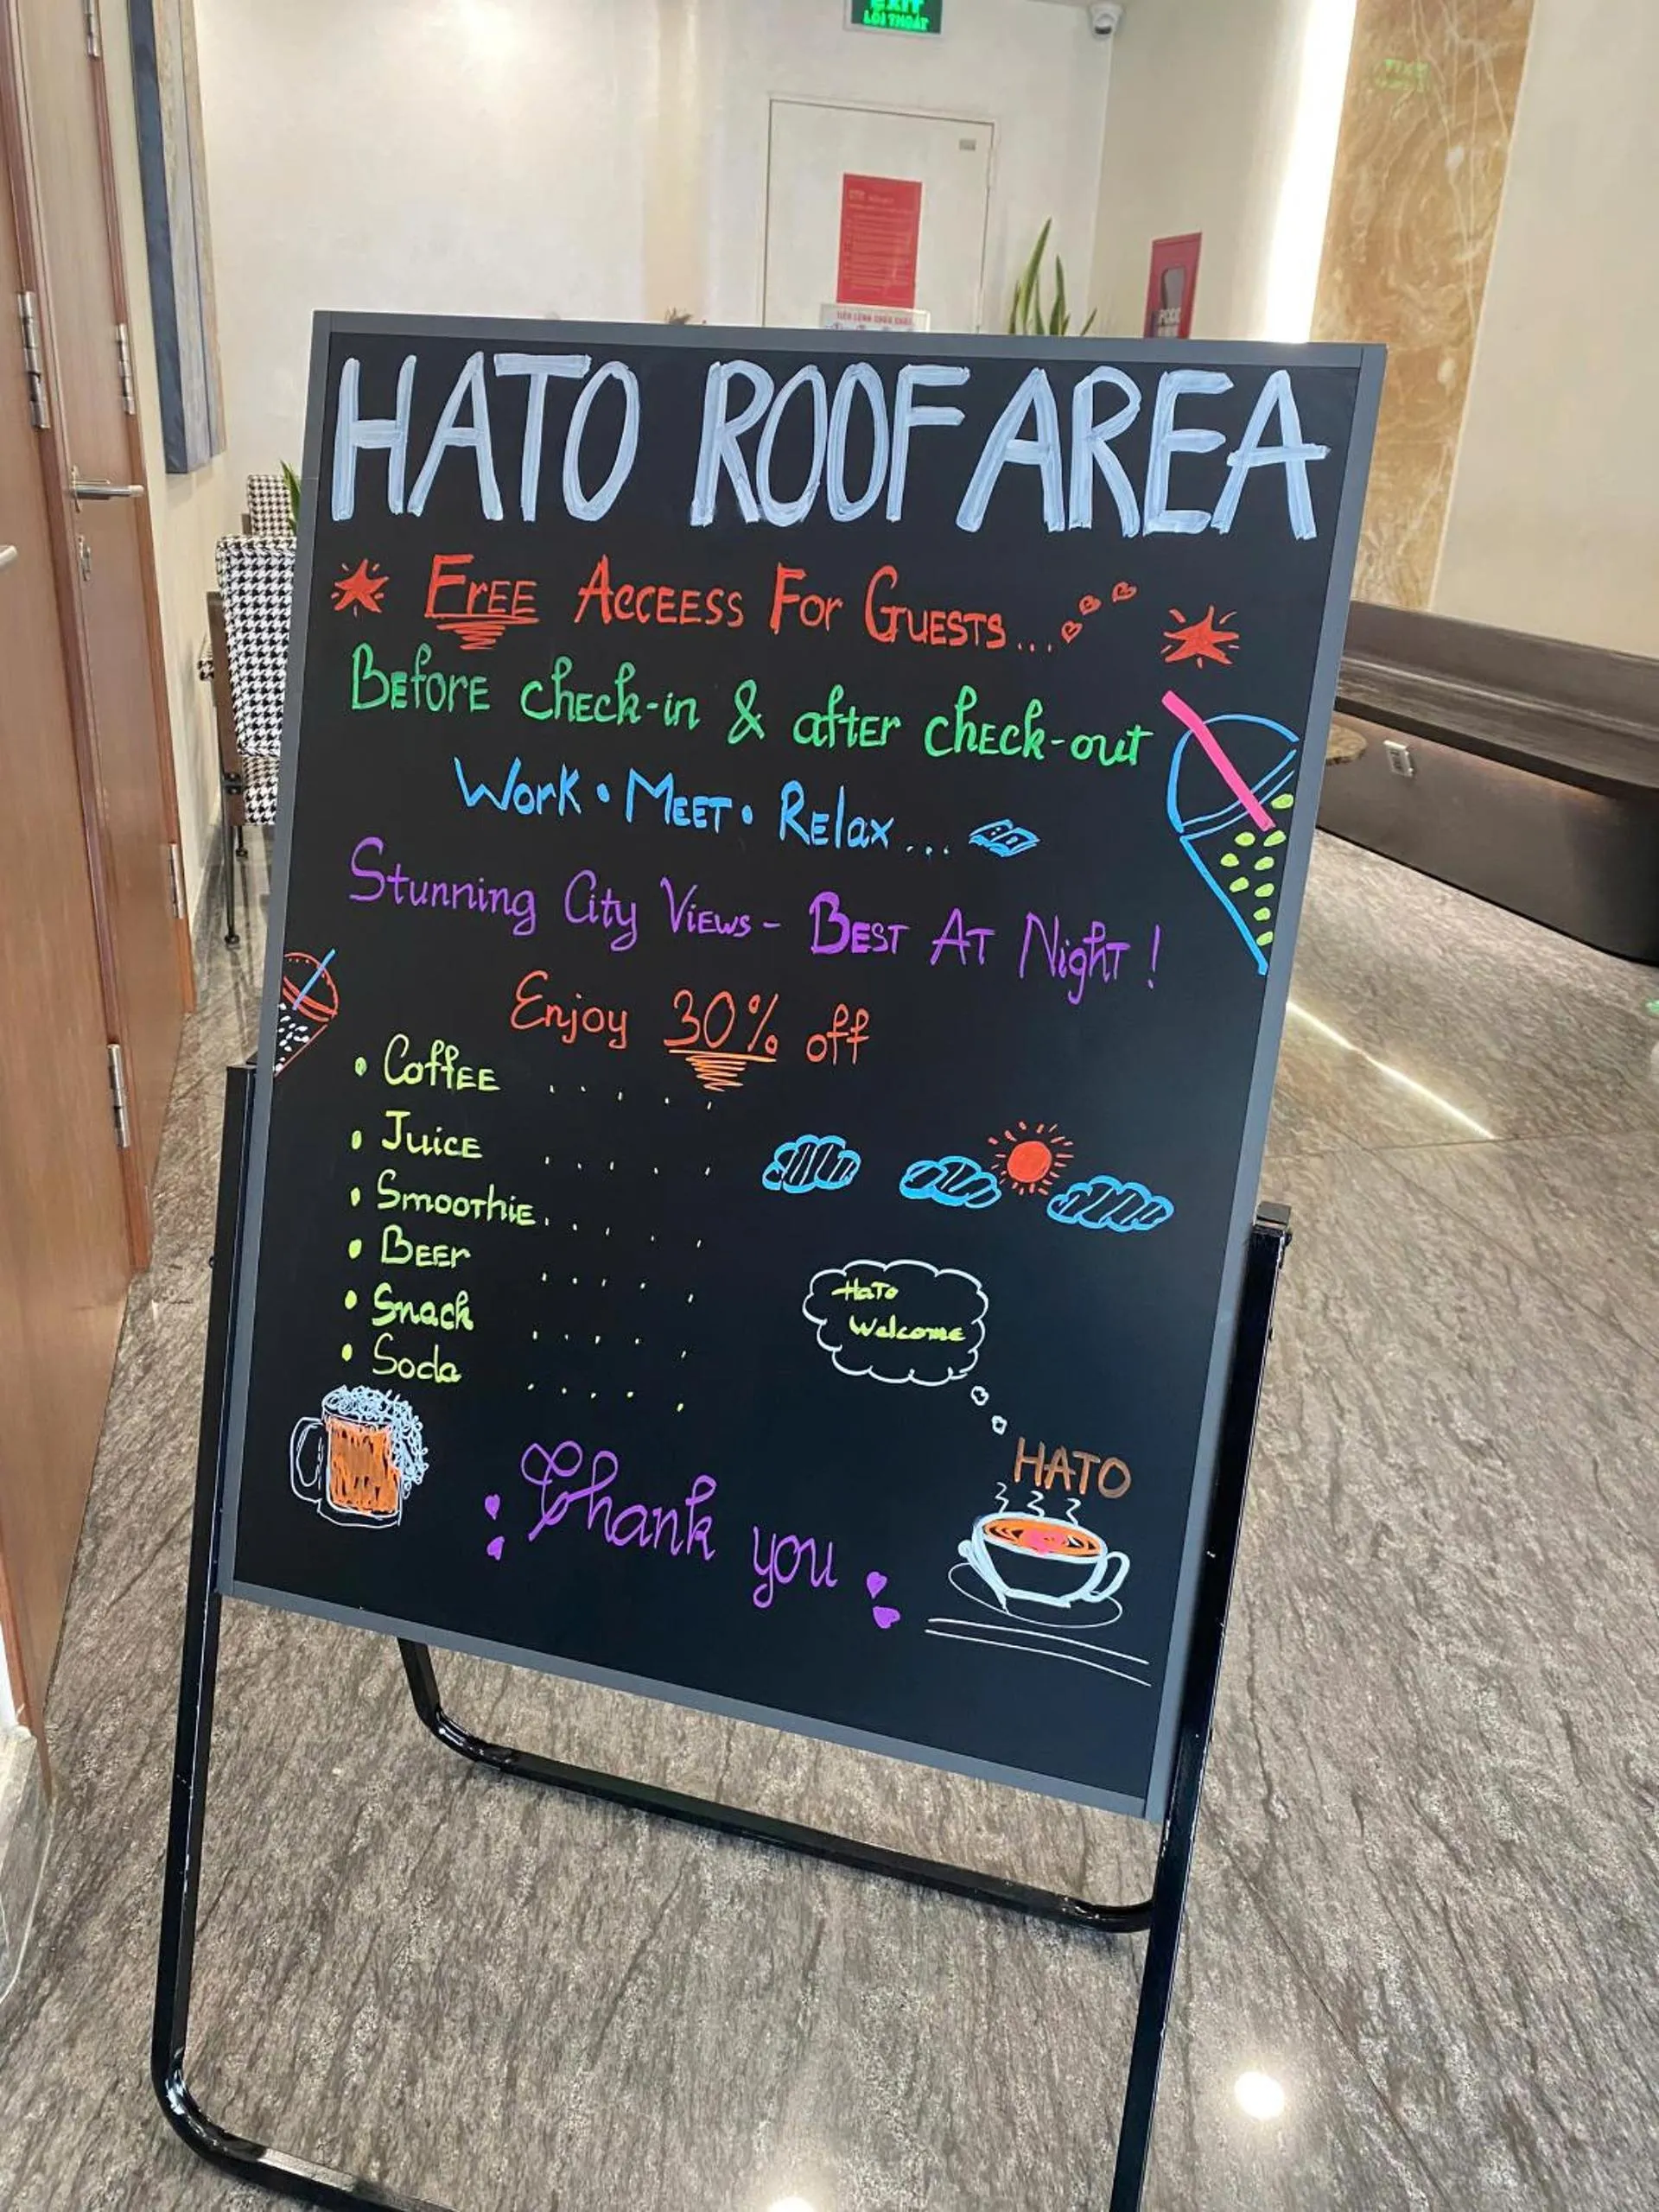 EXIT
LỐI THOÁT
PCCC
HATO ROOF AREA
FREE ACCEESS FOR GUESTS...
BEforE chEck-in & aftEr chEck-out
Work • MEET • RElax...
Stunning City ViEws - BEST AT NighT !
Enjoy 30% off
• CoffEE . . . . .
• JuicE . . . . .
• SmooThiE . . . . .
• BEEr . . . . .
• Snack . . . . .
• Soda . . . . .
HaTo
Welcome
HATO
Thank you